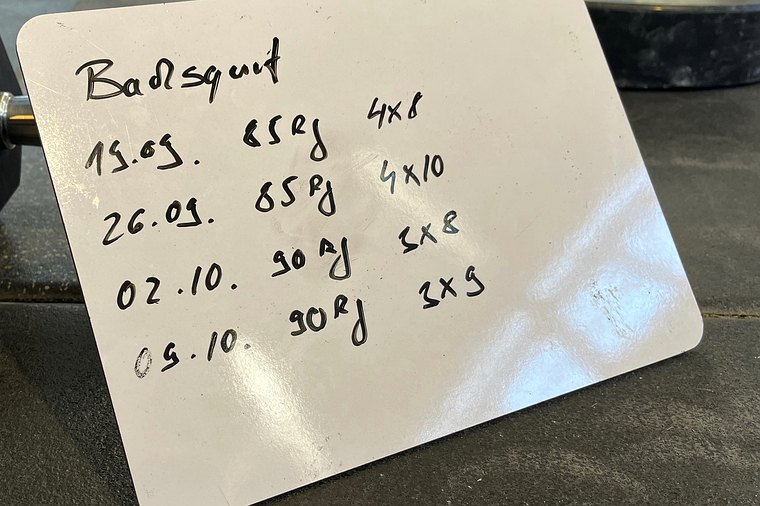 Backsquat
19.09. 85kg 4x8
26.09. 85kg 4x10
02.10. 90kg 3x8
09.10. 90kg 3x9